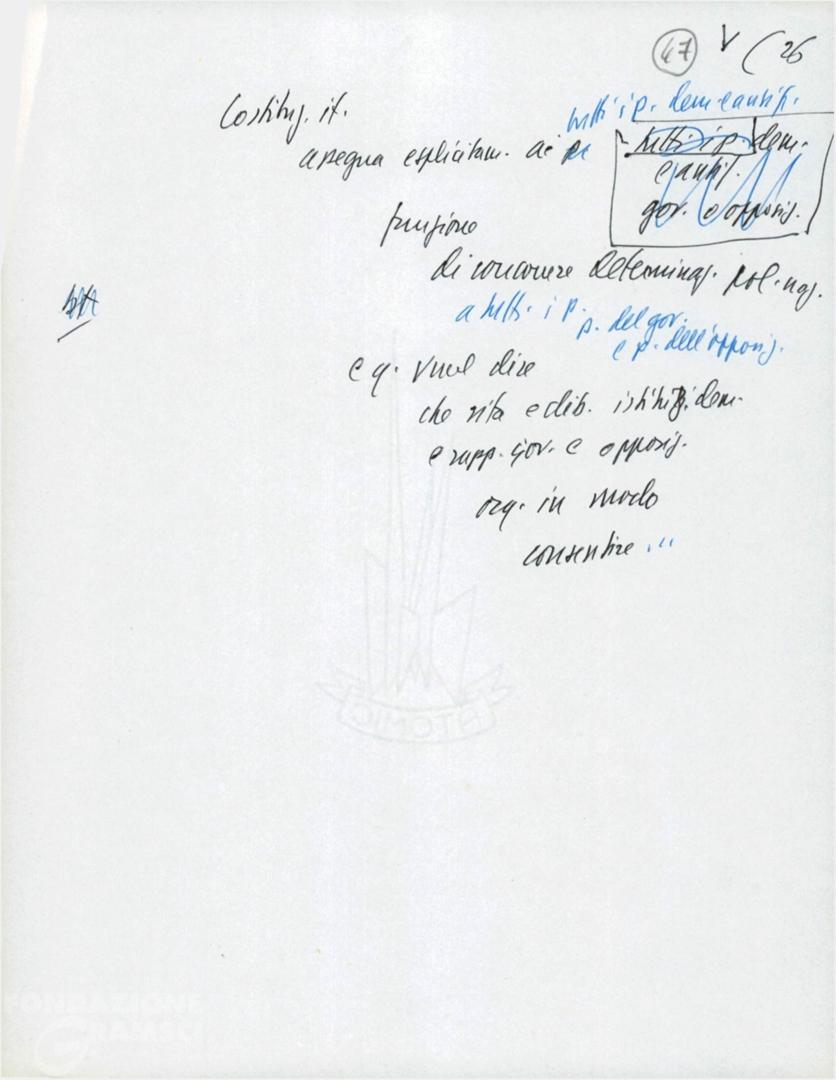 47 V ( 26
tutti i p. dem. e antif.
Costituz. it.
assegna esplicitam. ai p.
tutti i p. dem.
e antif.
gov. e opposiz.
funzione
di concorrere determinaz. pol. naz.
a tutti i p.
p. del gov.
e p. dell'opposiz.
e q. vuol dire
che vita e dib. istituz. dem.
e rapp. gov. e opposiz.
org. in modo
consentire ...
ATOMIC
FONDAZIONE
GRAMSCI